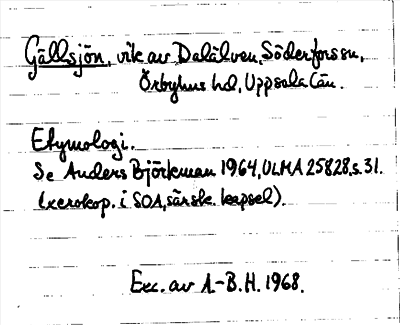 Gällsjön, vik av Dalälven, Söderfors sn,
Örbyhus hd, Uppsala län.
Etymologi.
Se Anders Björkman 1964, ULMA 25828, s. 31.
(xerokop. i SOA, särsk. kapsel).
Exc. av A.-B.H. 1968.